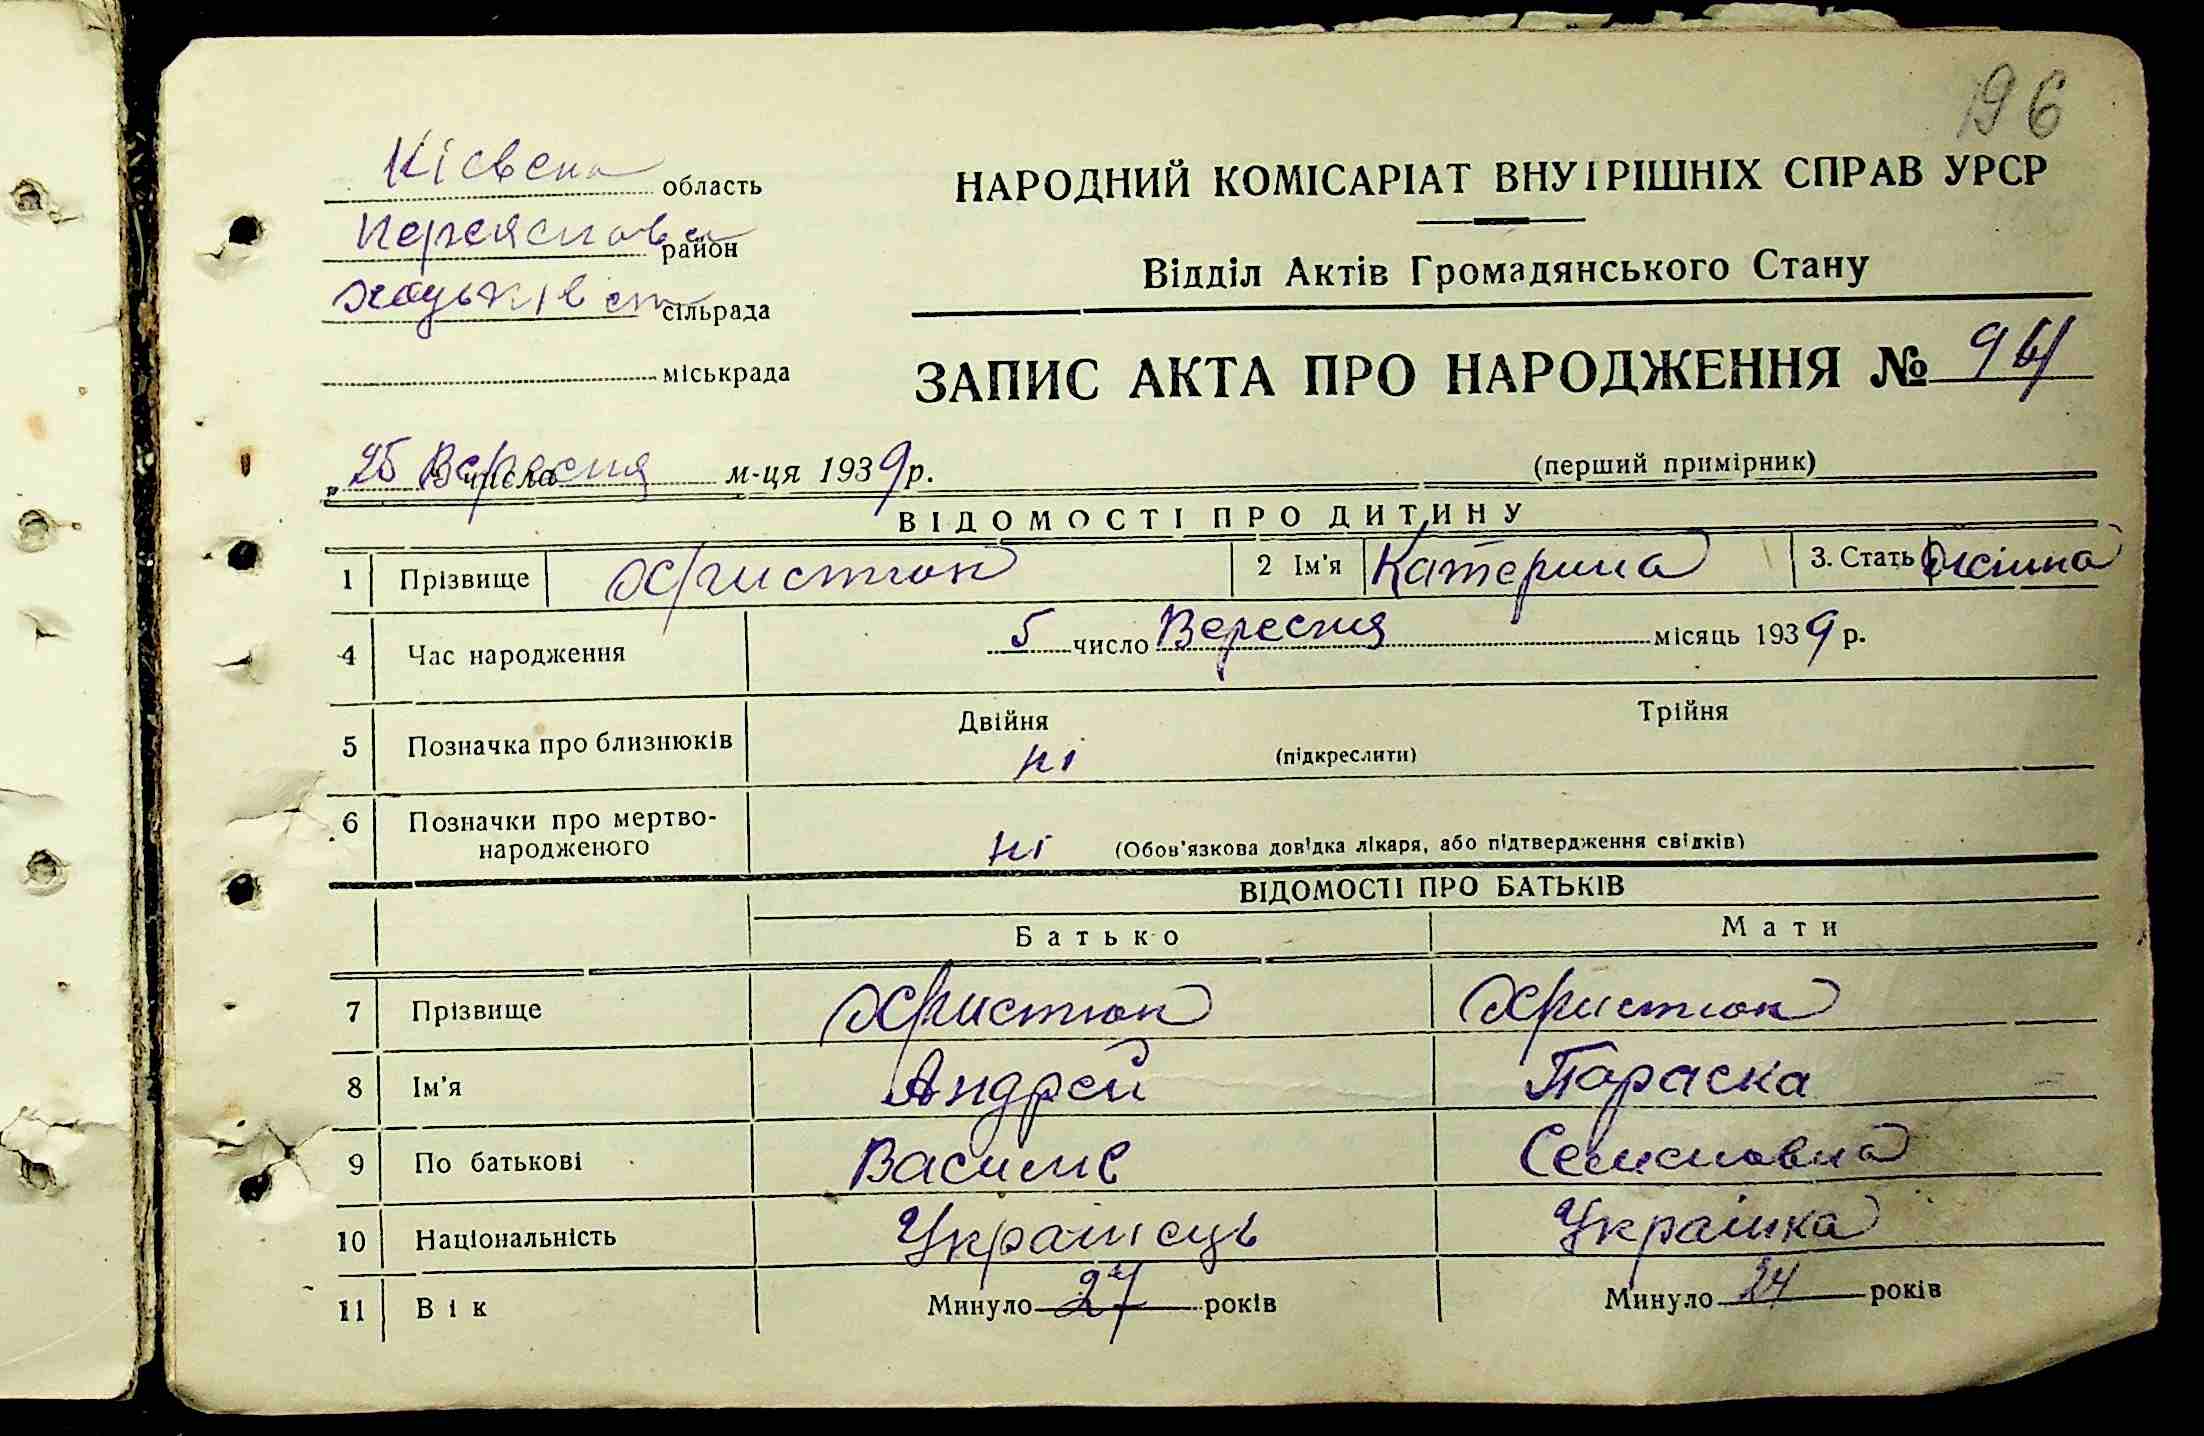 96
Кієвська область
Переяславс район
Хоцьківсь сільрада
міськрада
НАРОДНИЙ КОМІСАРІАТ ВНУТРІШНІХ СПРАВ УРСР
Відділ Актів Громадянського Стану
ЗАПИС АКТА ПРО НАРОДЖЕННЯ № 94
„ 25 " числа Вересня м-ця 1939 р.
(перший примірник)
ВІДОМОСТІ ПРО ДИТИНУ
1 Прізвище Християн 2 Ім'я Катерина 3. Стать жіноча
4 Час народження 5 число Вересня місяць 1939 р.
5 Позначка про близнюків Двійня Трійня
ні (підкреслити)
6 Позначки про мертво-
народженого ні (Обов'язкова довідка лікаря, або підтвердження свідків)
ВІДОМОСТІ ПРО БАТЬКІВ
Батько Мати
7 Прізвище Християн Християн
8 Ім'я Андрей Параска
9 По батькові Василів Семеновна
10 Національність Українець Українка
11 Вік Минуло 27 років Минуло 24 років